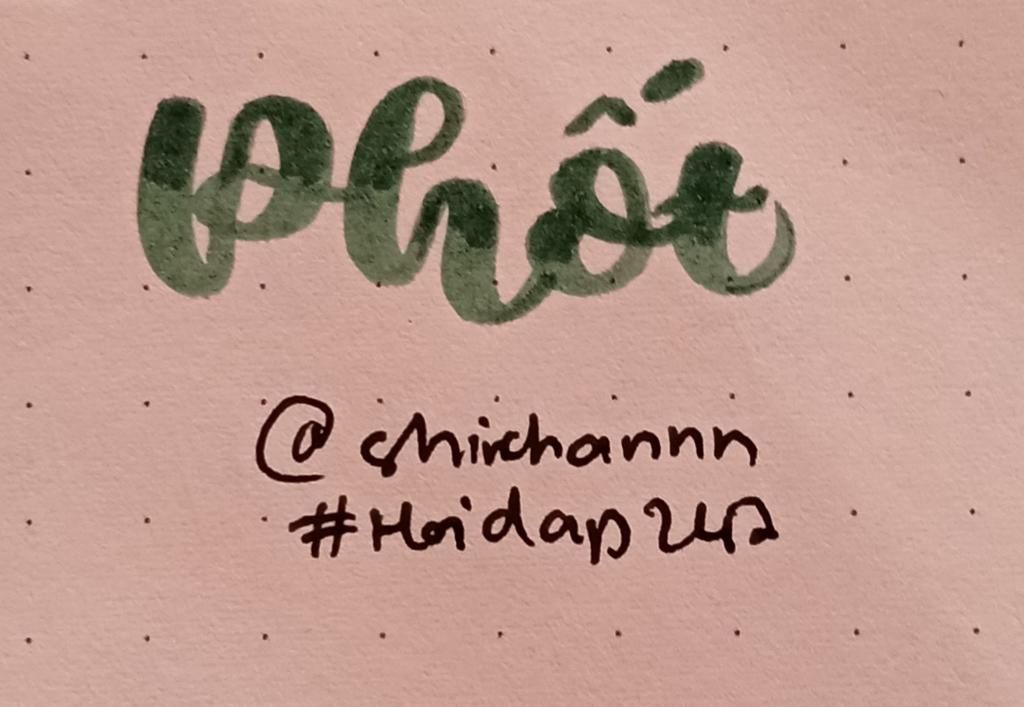 Phối
@shirchannn
#Hoidap247